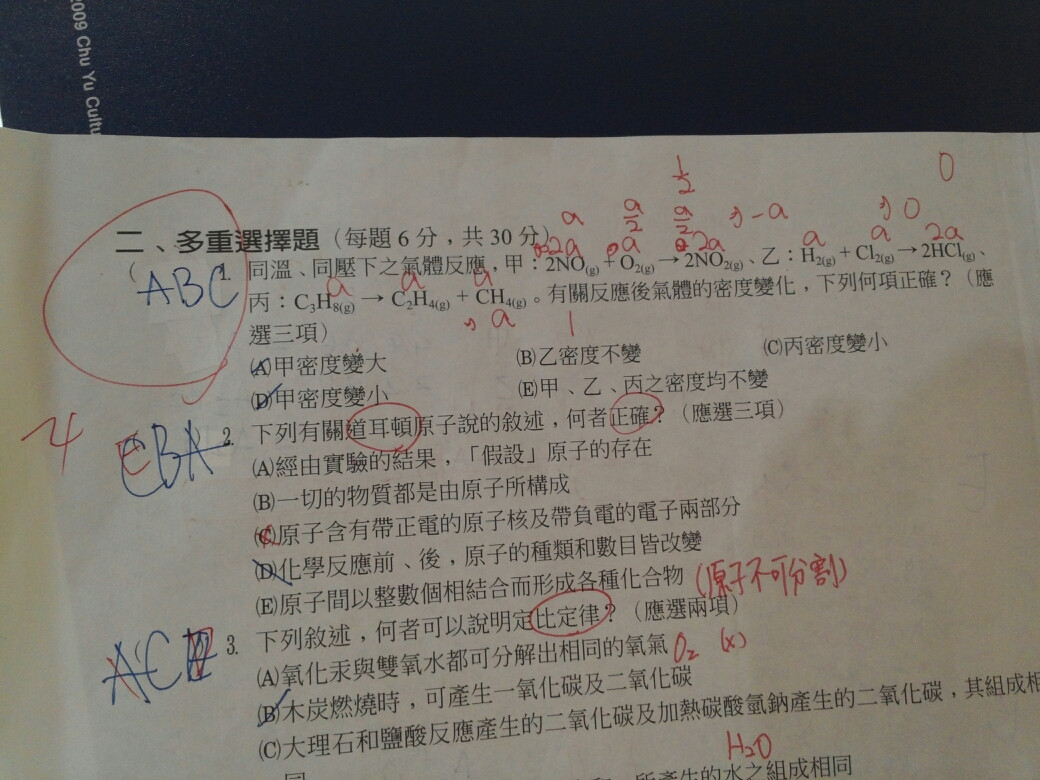 2009 Chu Yu Cultu
1/2
0
a a/2 a/2 → -a → 0
二、多重選擇題（每題 6 分，共 30 分）
2a a 2a a a 2a
( ABC 1. 同溫、同壓下之氣體反應，甲：2NO(g) + O2(g) → 2NO2(g)、乙：H2(g) + Cl2(g) → 2HCl(g)、
a a a
丙：C3H8(g) → C2H4(g) + CH4(g)。有關反應後氣體的密度變化，下列何項正確？（應
選三項）
a 1
(A)甲密度變大 (B)乙密度不變 (C)丙密度變小
(D)甲密度變小 (E)甲、乙、丙之密度均不變
4 EBA 2. 下列有關道耳頓原子說的敘述，何者正確？（應選三項）
(A)經由實驗的結果，「假設」原子的存在
(B)一切的物質都是由原子所構成
(C)原子含有帶正電的原子核及帶負電的電子兩部分
(D)化學反應前、後，原子的種類和數目皆改變
(E)原子間以整數個相結合而形成各種化合物 (原子不可分割)
AC 3. 下列敘述，何者可以說明定比定律？（應選兩項）
(A)氧化汞與雙氧水都可分解出相同的氧氣 O2 (x)
(B)木炭燃燒時，可產生一氧化碳及二氧化碳
(C)大理石和鹽酸反應產生的二氧化碳及加熱碳酸氫鈉產生的二氧化碳，其組成相
H2O
同
所產生的水之組成相同